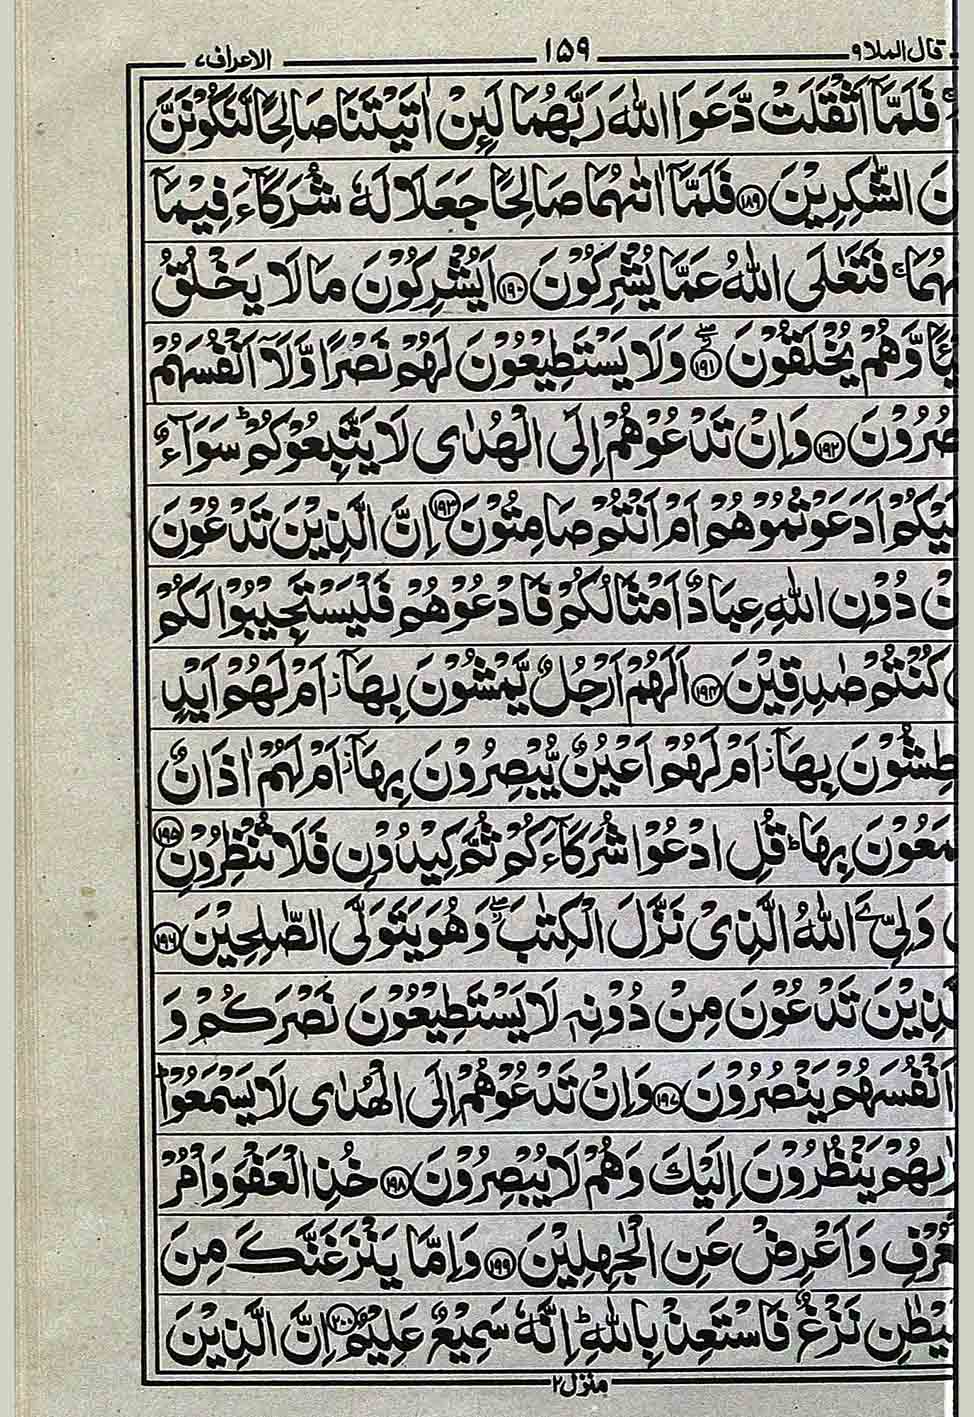 قال الملا ۹ ۱۵۹ الاعراف ۷
فَلَمَّآ اَثْقَلَتْ دَّعَوَا اللّٰهَ رَبَّهُمَا لَىِٕنْ اٰتَيْتَنَا صَالِحًا لَّنَكُوْنَنَّ
نَ الشّٰكِرِيْنَ ۱۸۹ فَلَمَّآ اٰتٰهُمَا صَالِحًا جَعَلَا لَهٗ شُرَكَآءَ فِيْمَآ
هُمَا ۚ فَتَعٰلَى اللّٰهُ عَمَّا يُشْرِكُوْنَ ۱۹۰ اَيُشْرِكُوْنَ مَا لَا يَخْلُقُ
ئًا وَّهُمْ يُخْلَقُوْنَ ۱۹۱ۖ وَلَا يَسْتَطِيْعُوْنَ لَهُمْ نَصْرًا وَّلَآ اَنْفُسَهُمْ
صُرُوْنَ ۱۹۲ وَاِنْ تَدْعُوْهُمْ اِلَى الْهُدٰى لَا يَتَّبِعُوْكُمْ ؕ سَوَآءٌ
لَيْكُمْ اَدَعَوْتُمُوْهُمْ اَمْ اَنْتُمْ صَامِتُوْنَ ۱۹۳ اِنَّ الَّذِيْنَ تَدْعُوْنَ
نْ دُوْنِ اللّٰهِ عِبَادٌ اَمْثَالُكُمْ فَادْعُوْهُمْ فَلْيَسْتَجِيْبُوْا لَكُمْ
كُنْتُمْ صٰدِقِيْنَ ۱۹۴ اَلَهُمْ اَرْجُلٌ يَّمْشُوْنَ بِهَآ ز اَمْ لَهُمْ اَيْدٍ
طِشُوْنَ بِهَآ ز اَمْ لَهُمْ اَعْيُنٌ يُّبْصِرُوْنَ بِهَآ ز اَمْ لَهُمْ اٰذَانٌ
مَعُوْنَ بِهَا ؕ قُلِ ادْعُوْا شُرَكَآءَكُمْ ثُمَّ كِيْدُوْنِ فَلَا تُنْظِرُوْنِ ۱۹۵
وَلِيِّ ےَ اللّٰهُ الَّذِىْ نَزَّلَ الْكِتٰبَ ۖ وَهُوَ يَتَوَلَّى الصّٰلِحِيْنَ ۱۹۶
لَّذِيْنَ تَدْعُوْنَ مِنْ دُوْنِهٖ لَا يَسْتَطِيْعُوْنَ نَصْرَكُمْ وَ
اَنْفُسَهُمْ يَنْصُرُوْنَ ۱۹۷ وَاِنْ تَدْعُوْهُمْ اِلَى الْهُدٰى لَا يَسْمَعُوْا ؕ
ىهُمْ يَنْظُرُوْنَ اِلَيْكَ وَهُمْ لَا يُبْصِرُوْنَ ۱۹۸ خُذِ الْعَفْوَ وَاْمُرْ
عُرْفِ وَاَعْرِضْ عَنِ الْجٰهِلِيْنَ ۱۹۹ وَاِمَّا يَنْزَغَنَّكَ مِنَ
يْطٰنِ نَزْغٌ فَاسْتَعِذْ بِاللّٰهِ ؕ اِنَّهٗ سَمِيْعٌ عَلِيْمٌ ۲۰۰ اِنَّ الَّذِيْنَ
منزل ۲